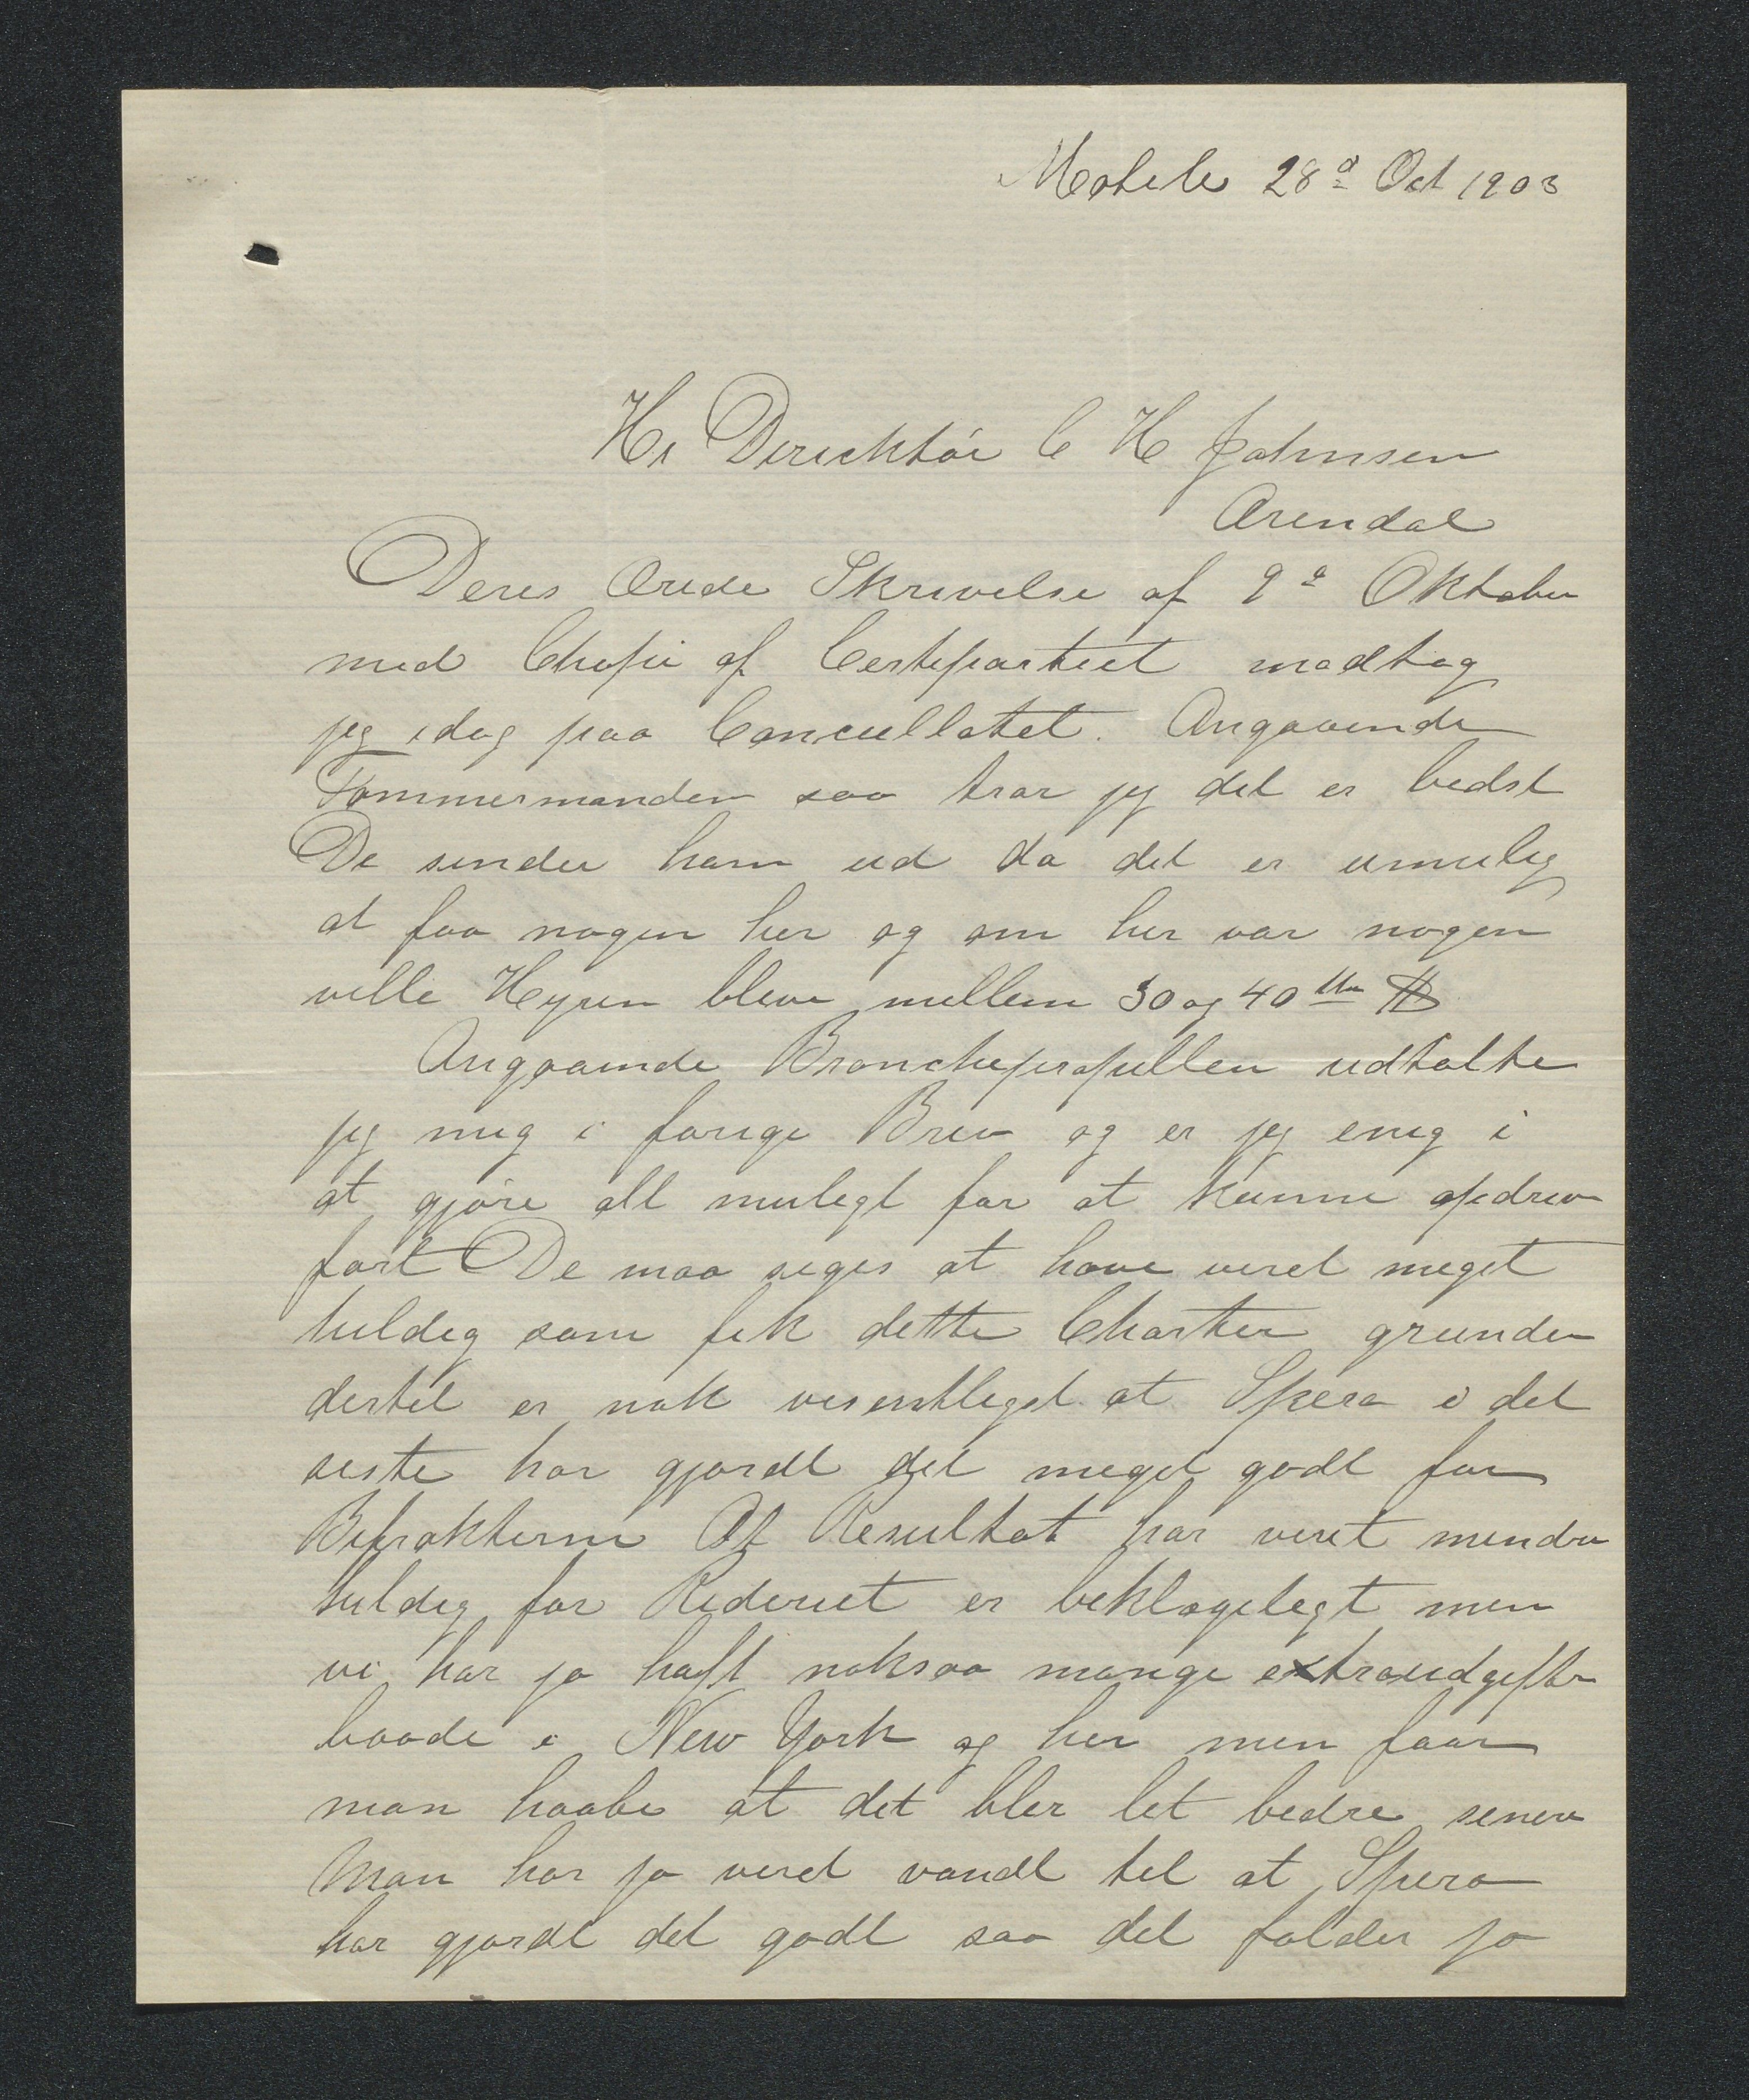 Mobile 28d Oct 1903
Hr Direktör C H Johnsen
Arendal
Deres Ærede Skrivelse af 9d Oktober
med Chopi af Certepartiet modtog
jeg idag paa Concullatet. Angaaende
Tømmermanden saa tror jeg det er bedst
De sender ham ud da det er umulig
at faa nogen her og om her var nogen
ville Hyren blive mellem 30 og 40
Angaaende Bronchepropellen udtalte
jeg mig i forige Brev og er jeg enig i
at gjöre alt muligt for at kunne opdrive
fart De maa siges at have veret meget
heldig som fik dette Charter grunden
dertil er nok vesentligst at Spera i det
siste har gjordt det meget godt for
Befrakterne At Resultat har veret mindre
heldig for Rederiet er beklageligt men
vi har jo haft noksaa mange extraudgifter
baade i New York og her men faar
man haabe at det bler let bedre senere
Man har jo veret vandt til at Spera
har gjordt det godt saa det falder jo